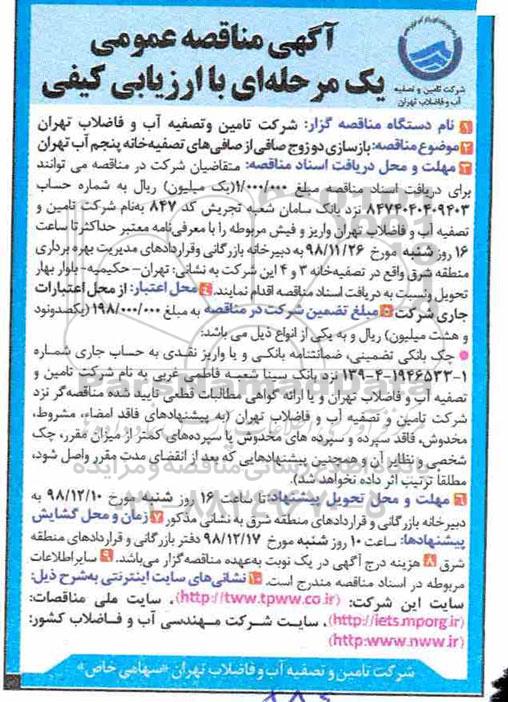 آگهی مناقصه عمومی
یک مرحله‌ای با ارزیابی کیفی
شرکت تامین و تصفیه
آب و فاضلاب تهران
۱ نام دستگاه مناقصه گزار: شرکت تامین وتصفیه آب و فاضلاب تهران
۲ موضوع مناقصه: بازسازی دو زوج صافی از صافی‌های تصفیه‌خانه پنجم آب تهران
۳ مهلت و محل دریافت اسناد مناقصه: متقاضیان شرکت در مناقصه می توانند
برای دریافت اسناد مناقصه مبلغ ۱/۰۰۰/۰۰۰(یک میلیون) ریال به شماره حساب
۸۴۷۴۰۴۰۴۰۹۴۰۳ نزد بانک سامان شعبه تجریش کد ۸۴۷ به‌نام شرکت تامین و
تصفیه آب و فاضلاب تهران واریز و فیش مربوطه را با معرفی‌نامه معتبر حداکثرتا ساعت
۱۶ روز شنبه مورخ ۹۸/۱۱/۲۶ به دبیرخانه بازرگانی وقراردادهای مدیریت بهره برداری
منطقه شرق واقع در تصفیه‌خانه ۳ و ۴ این شرکت به نشانی: تهران- حکیمیه- بلوار بهار
تحویل ونسبت به دریافت اسناد مناقصه اقدام نمایند. ۴ محل اعتبار: از محل اعتبارات
جاری شرکت ۵ مبلغ تضمین شرکت در مناقصه به مبلغ ۱۹۸/۰۰۰/۰۰۰ (یکصدونود
و هشت میلیون) ریال و به یکی از انواع ذیل می باشد:
● چک بانکی تضمینی، ضمانتنامه بانکی و یا واریز نقدی به حساب جاری شماره
۱-۱۹۴۶۵۳۳-۴-۱۳۹ نزد بانک سینا شعبه فاطمی غربی به نام شرکت تامین و
تصفیه آب و فاضلاب تهران و یا ارائه گواهی مطالبات قطعی تایید شده مناقصه‌گر نزد
شرکت تامین و تصفیه آب و فاضلاب تهران (به پیشنهادهای فاقد امضاء، مشروط،
مخدوش، فاقد سپرده و سپرده های مخدوش یا سپرده‌های کمتر از میزان مقرر، چک
شخصی و نظایر آن و همچنین پیشنهادهایی که بعد از انقضای مدت مقرر واصل شود،
مطلقا ترتیب اثر داده نخواهد شد).
۶ مهلت و محل تحویل پیشنهاد: تا ساعت ۱۶ روز شنبه مورخ ۹۸/۱۲/۱۰ به
دبیرخانه بازرگانی و قراردادهای منطقه شرق به نشانی مذکور ۷ زمان و محل گشایش
پیشنهادها: ساعت ۱۰ روز شنبه مورخ ۹۸/۱۲/۱۷ دفتر بازرگانی و قراردادهای منطقه
شرق ۸ هزینه درج آگهی در یک نوبت به‌عهده مناقصه‌گزار می باشد. ۹ سایراطلاعات
مربوطه در اسناد مناقصه مندرج است. ۱۰ نشانی‌های سایت اینترنتی به‌شرح ذیل:
سایت این شرکت: (http://tww.tpww.co.ir)، سایت ملی مناقصات:
(http://iets.mporg.ir)، سایت شرکت مهندسی آب و فاضلاب کشور:
(http:www.nww.ir)
شرکت تامین و تصفیه آب و فاضلاب تهران «سهامی خاص»